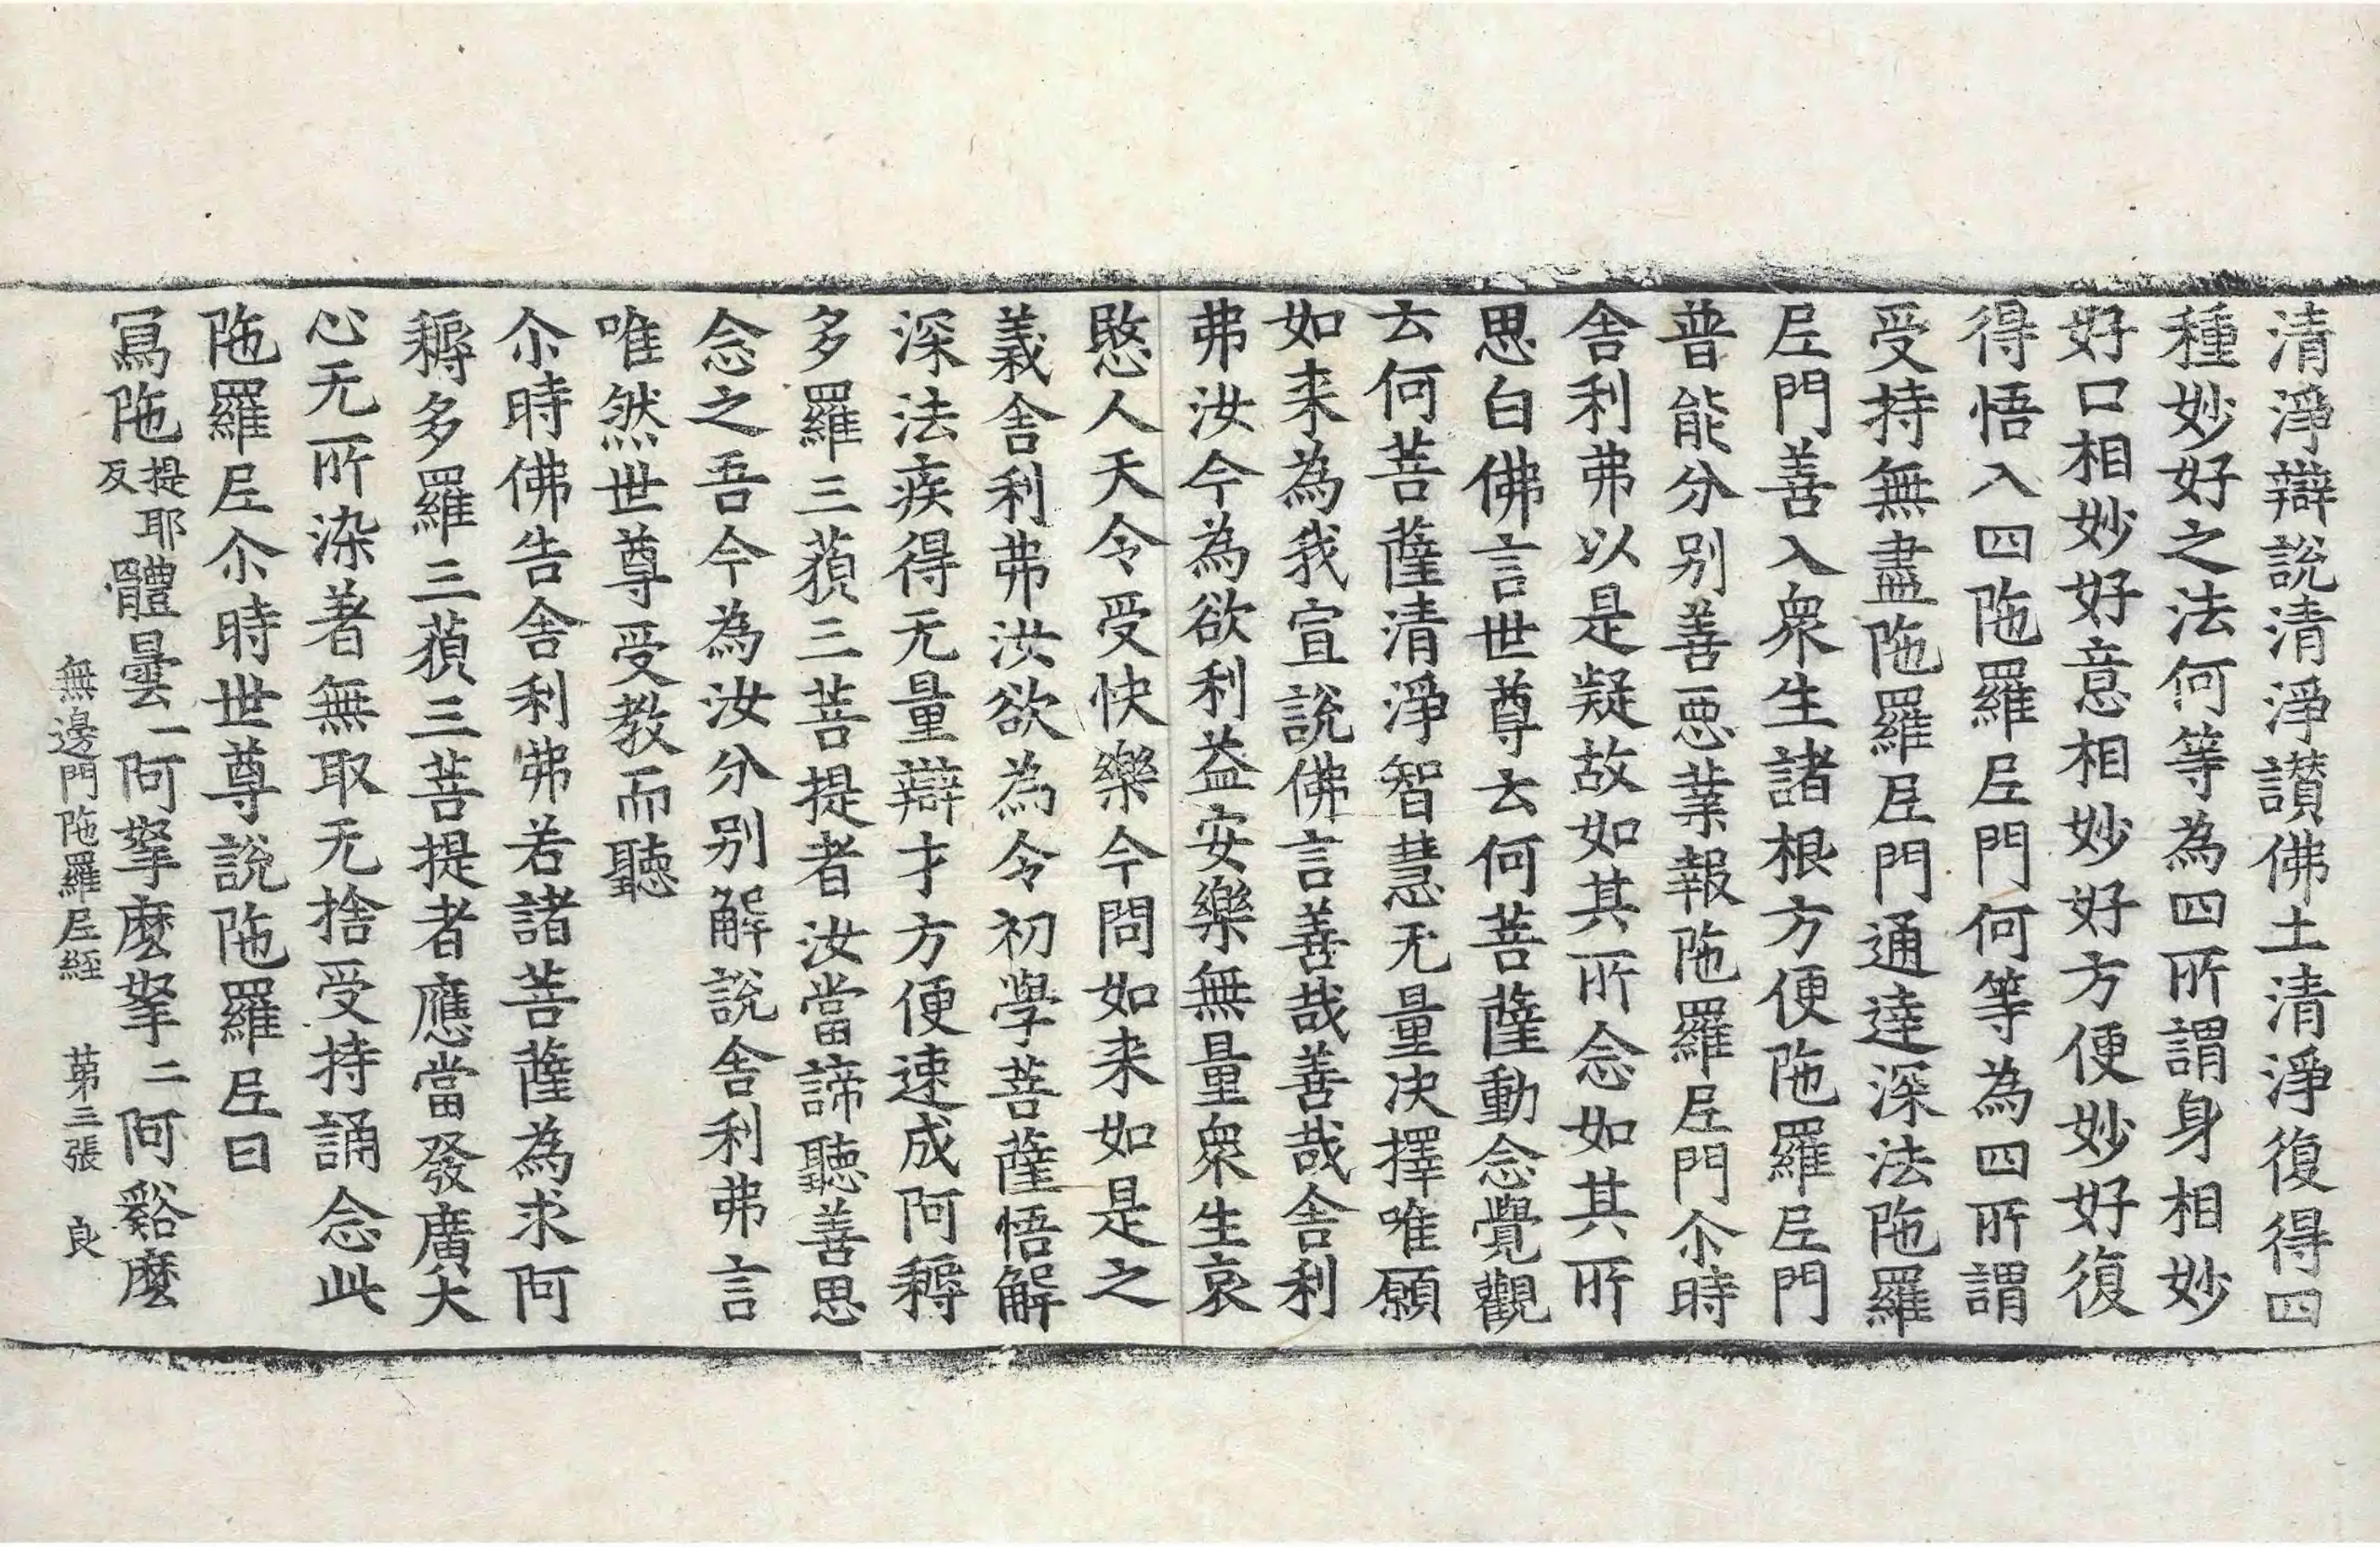 清淨辯說清淨讚佛土清淨復得四
種妙好之法何等為四所謂身相妙
好口相妙好意相妙好方便妙好復
得悟入四陁羅𡰱門何等為四所謂
受持無盡陁羅𡰱門通達深法陁羅
𡰱門善入衆生諸根方便陁羅𡰱門
普能分別善惡業報陁羅𡰱門尒時
舍利弗以是疑故如其所念如其所
思白佛言世尊云何菩薩動念覺觀
云何菩薩清淨智慧无量決擇唯願
如来為我宣說佛言善哉善哉舍利
弗汝今為欲利益安樂無量衆生哀
愍人天令受快樂今問如来如是之
義舍利弗汝欲為令初學菩薩悟解
深法疾得无量辯才方便速成阿耨
多羅三藐三菩提者汝當諦聽善思
念之吾今為汝分別解說舍利弗言
唯然世尊受教而聽
尒時佛告舍利弗若諸菩薩為求阿
耨多羅三藐三菩提者應當發廣大
心无所染著無取无捨受持誦念此
陁羅𡰱尒時世尊說陁羅𡰱曰
冩陁提耶反體曇一阿拏麽拏二阿谿麽
無邊門陁羅𡰱經 苐三張 良